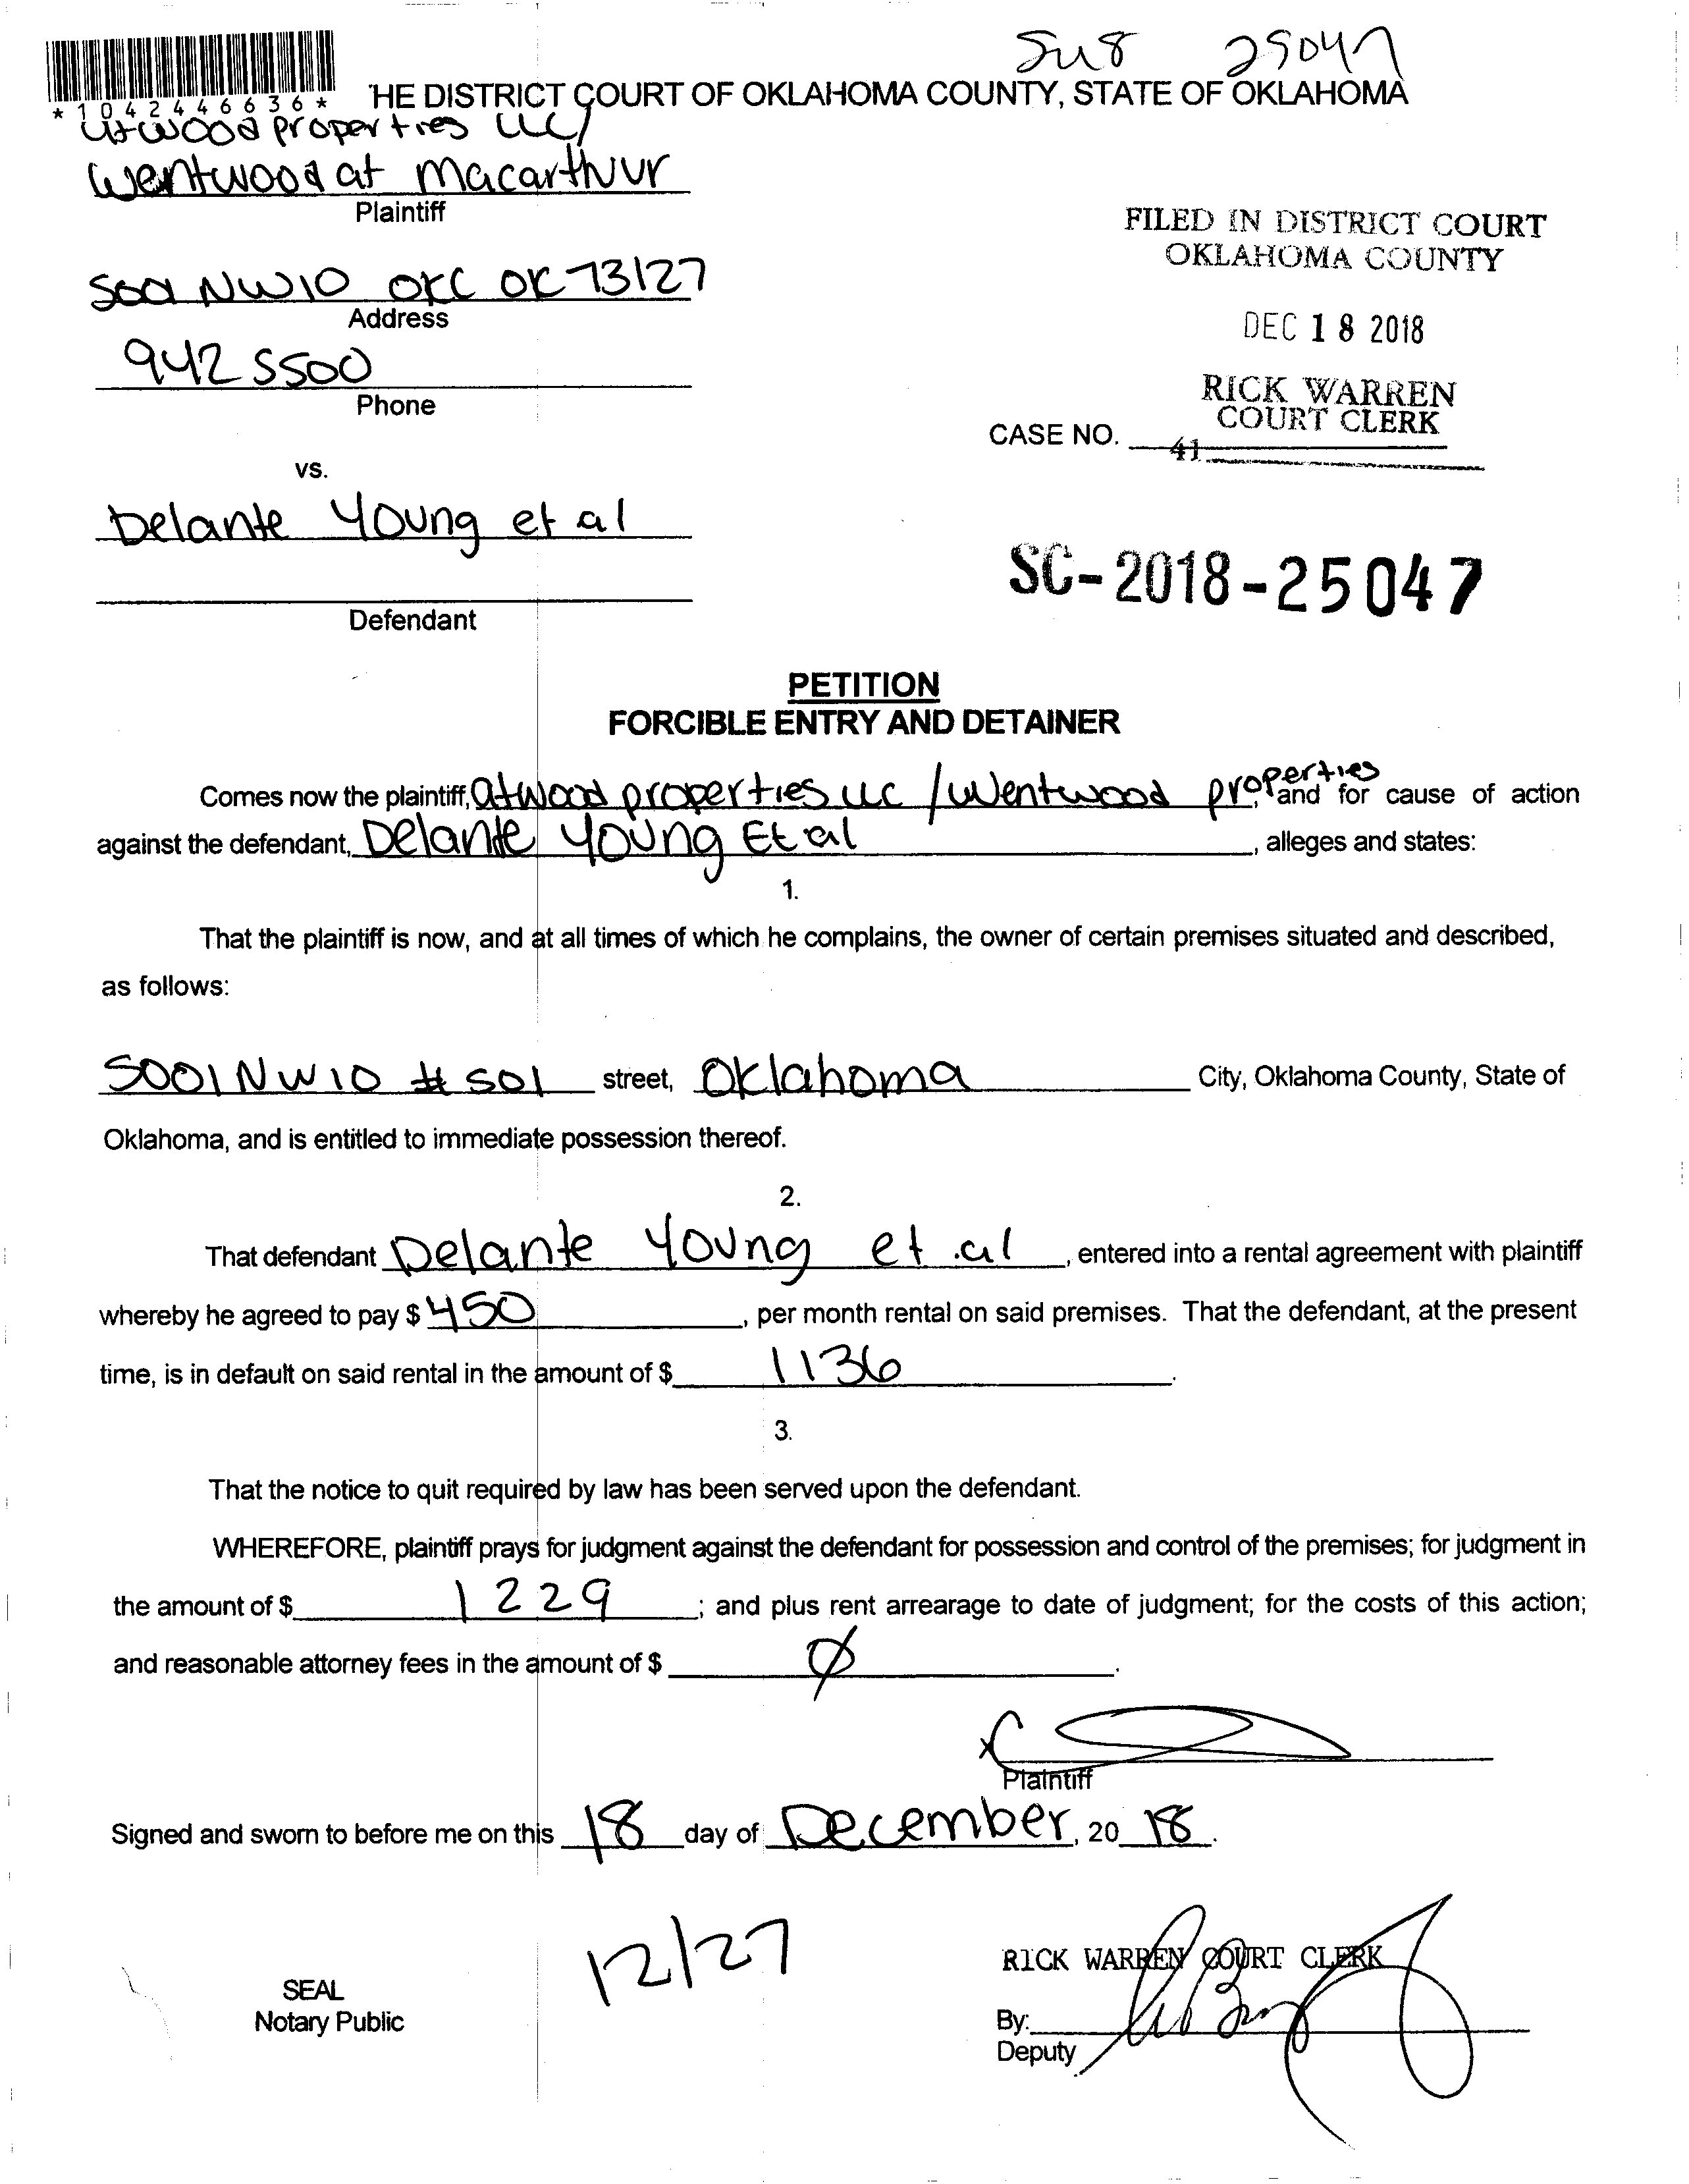 Su8 25047
*1042446636* HE DISTRICT COURT OF OKLAHOMA COUNTY, STATE OF OKLAHOMA
atwood properties LLC/
Wentwood at Macarthur
Plaintiff
FILED IN DISTRICT COURT
OKLAHOMA COUNTY
5001 NW10 OKC OK 73127
Address
DEC 18 2018
942 5500
Phone
RICK WARREN
COURT CLERK
CASE NO. 41
vs.
Delante Young et al
SC-2018-25047
Defendant
PETITION
FORCIBLE ENTRY AND DETAINER
Comes now the plaintiff, atwood properties LLC / Wentwood properties, and for cause of action
against the defendant, Delante Young Et al, alleges and states:
1.
That the plaintiff is now, and at all times of which he complains, the owner of certain premises situated and described,
as follows:
5001 NW 10 # 501 street, Oklahoma City, Oklahoma County, State of
Oklahoma, and is entitled to immediate possession thereof.
2.
That defendant Delante Young et al, entered into a rental agreement with plaintiff
whereby he agreed to pay $ 450, per month rental on said premises. That the defendant, at the present
time, is in default on said rental in the amount of $ 1136.
3.
That the notice to quit required by law has been served upon the defendant.
WHEREFORE, plaintiff prays for judgment against the defendant for possession and control of the premises; for judgment in
the amount of $ 1229; and plus rent arrearage to date of judgment; for the costs of this action;
and reasonable attorney fees in the amount of $ Ø.
x
Plaintiff
Signed and sworn to before me on this 18 day of December, 20 18.
12/27
RICK WARREN COURT CLERK
SEAL
Notary Public
By:
Deputy